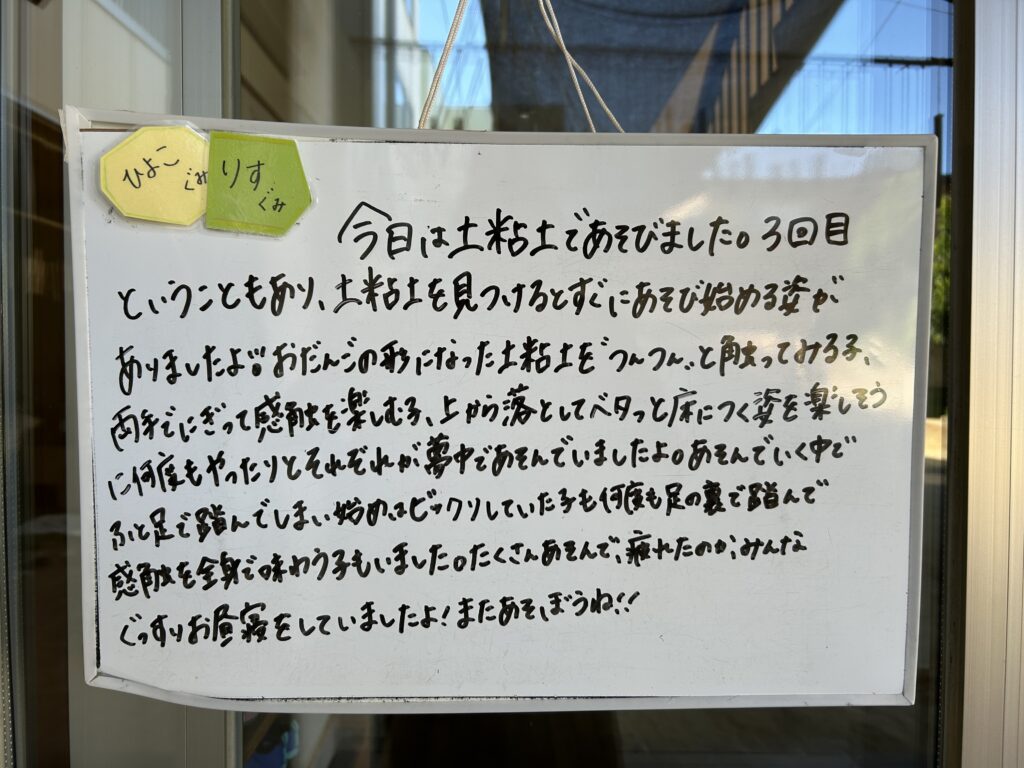 ひよこぐみ
りすぐみ
今日は土粘土であそびました。3回目
ということもあり、土粘土を見つけるとすぐにあそび始める姿が
ありましたよ!!おだんごの形になった土粘土を"つんつん"と触ってみる子、
両手でにぎって感触を楽しむ子、上から落としてベタっと床につく姿を楽しそう
に何度もやったりとそれぞれが夢中であそんでいましたよ。あそんでいく中で
ふと足で踏んでしまい始めはビックリしていた子も何度も足の裏で踏んで
感触を全身で味わう子もいました。たくさんあそんで、疲れたのか、みんな
ぐっすりお昼寝をしていましたよ!またあそぼうね!!